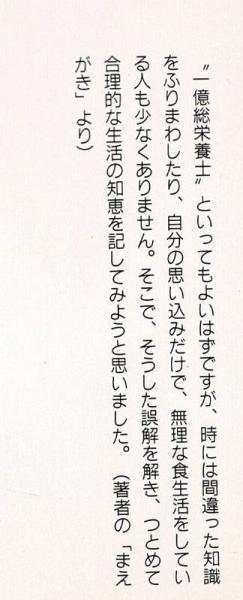 〝一億総栄養士〟といってもよいはずですが、時には間違った知識
をふりまわしたり、自分の思い込みだけで、無理な食生活をしてい
る人も少なくありません。そこで、そうした誤解を解き、つとめて
合理的な生活の知恵を記してみようと思いました。（著者の「まえ
がき」より）